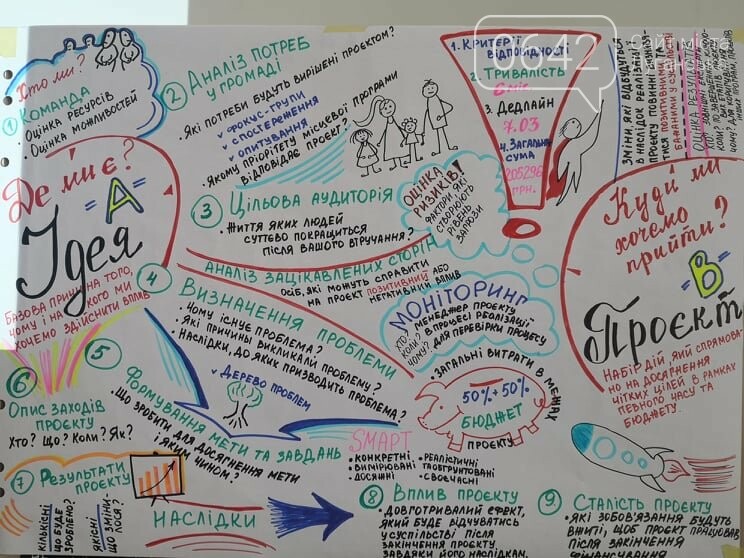 Хто ми?
① Команда
• Оцінка ресурсів
• Оцінка можливостей
② Аналіз потреб
у громаді
• Які потреби будуть вирішені проєктом?
✓ Фокус-групи
✓ Спостереження
✓ Опитування
• Якому пріоритету місцевої програми
відповідає проєкт?
1. Критерії
відповідності
2. Тривалість
3. Дедлайн
7.03
4. Загальна
сума
205296
грн.
0642
Зміни, які відбудуться
в наслідок реалізації
проєкту повинні визнава-
тися позитивними та
бажаними у суспільстві
Оцінка результатів
Де ми є?
"А"
Ідея
Базова причина того,
чому і на кого ми
хочемо здійснити вплив
③ Цільова аудиторія
• Життя яких людей
суттєво покращиться
після вашого втручання?
Оцінка
ризиків!
Фактори, які
створюють
рівень
загрози
Аналіз зацікавлених сторін
Осіб, які можуть справити
на проєкт позитивний або
негативний вплив
Куди ми
хочемо
прийти?
"В"
Проєкт
Набір дій, який спрямова-
но на досягнення
чітких цілей в рамках
певного часу та
бюджету.
④ Визначення проблеми
• Чому існує проблема?
• Які причини викликали проблему?
• Наслідки, до яких призводить проблема?
✓ Дерево проблем
Моніторинг
Хто? менеджер проєкту
Коли? в процесі реалізації
Чому? для перевірки процесу
⑤ Формування мети та завдань
• Що зробити для досягнення мети
і яким чином?
• Загальні витрати в межах
проєкту
50% + 50%
Бюджет
SMART
• Конкретні
• Вимірювані
• Досяжні
• Реалістичні
та обґрунтовані
• Своєчасні
⑥ Опис заходів
проєкту
Хто? Що? Коли? Як?
⑦ Результати
проєкту
Кількісні
що буде
зроблено?
Якісні
що зміни-
лося?
Наслідки
⑧ Вплив проєкту
• Довготривалий ефект,
який буде відчуватись
у суспільстві після
закінчення проєкту
завдяки його наслідкам.
⑨ Сталість проєкту
• Які зобов'язання будуть
вниті, щоб проєкт працював
після закінчення
фінансування